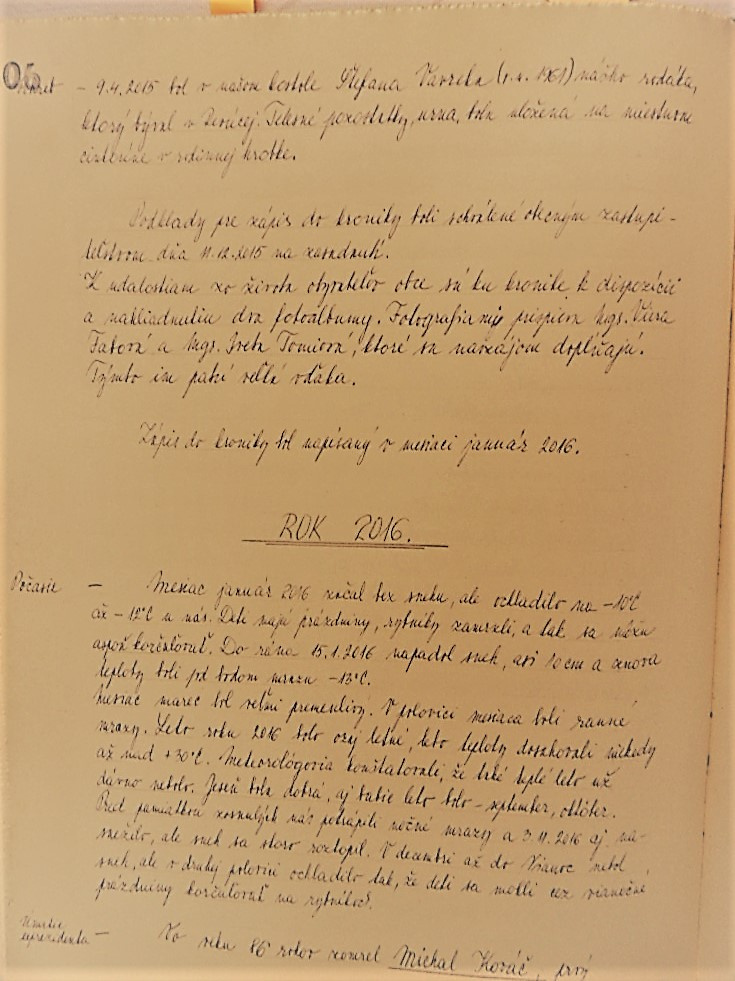 06
– 9.4.2015 bol v našom kostole Štefana Vavreka (r.n. 1961) nášho rodáka,
ktorý býval v Revúcej. Telesné pozostatky, urna, bola uložená na miestnom
cinteríne v rodinnej hrobke.
Podklady pre zápis do kroniky boli schválené obecným zastupi-
teľstvom dňa 11.12.2015 na zasadnutí.
K udalostiam zo života obyvateľov obce sú ku kronike k dispozícii
a nahliadnutiu dva fotoalbumy. Fotografiami prispieva Mgr. Viera
a Mgr. Iveta Tomiová, ktoré sa navzájom doplňajú.
Týmto im patrí veľká vďaka.
Zápis do kroniky bol napísaný v mesiaci január 2016.
ROK 2016.
Počasie – Mesiac január 2016 začal bez snehu, ale ochladilo na –10°C
až –12°C u nás. Deti majú prázdniny, rybníky zamrzli, a tak sa môžu
aspoň korčuľovať. Do rána 15.1.2016 napadol sneh, asi 10 cm a znova
teploty boli pod bodom mrazu –13°C.
Mesiac marec bol veľmi premenlivý. V polovici mesiaca boli ranné
mrazy. Leto roku 2016 bolo ozaj letné, leto teploty dosahovali niekedy
až nad +30°C. Meteorológovia konštatovali, že také teplé leto už
dávno nebolo. Jeseň bola dobrá, aj babie leto bolo – september, október.
Pred pamiatkou zosnulých nás potrápili nočné mrazy a 3.11.2016 aj na-
snežilo, ale sneh sa skoro roztopil. V decembri až do Vianoc nebol
sneh, ale v druhej polovici ochladilo tak, že deti sa mohli cez vianočné
prázdniny korčuľovať na rybníkoch.
Úmrtie
exprezidenta – Vo veku 86 rokov zomrel Michal Kováč, prvý